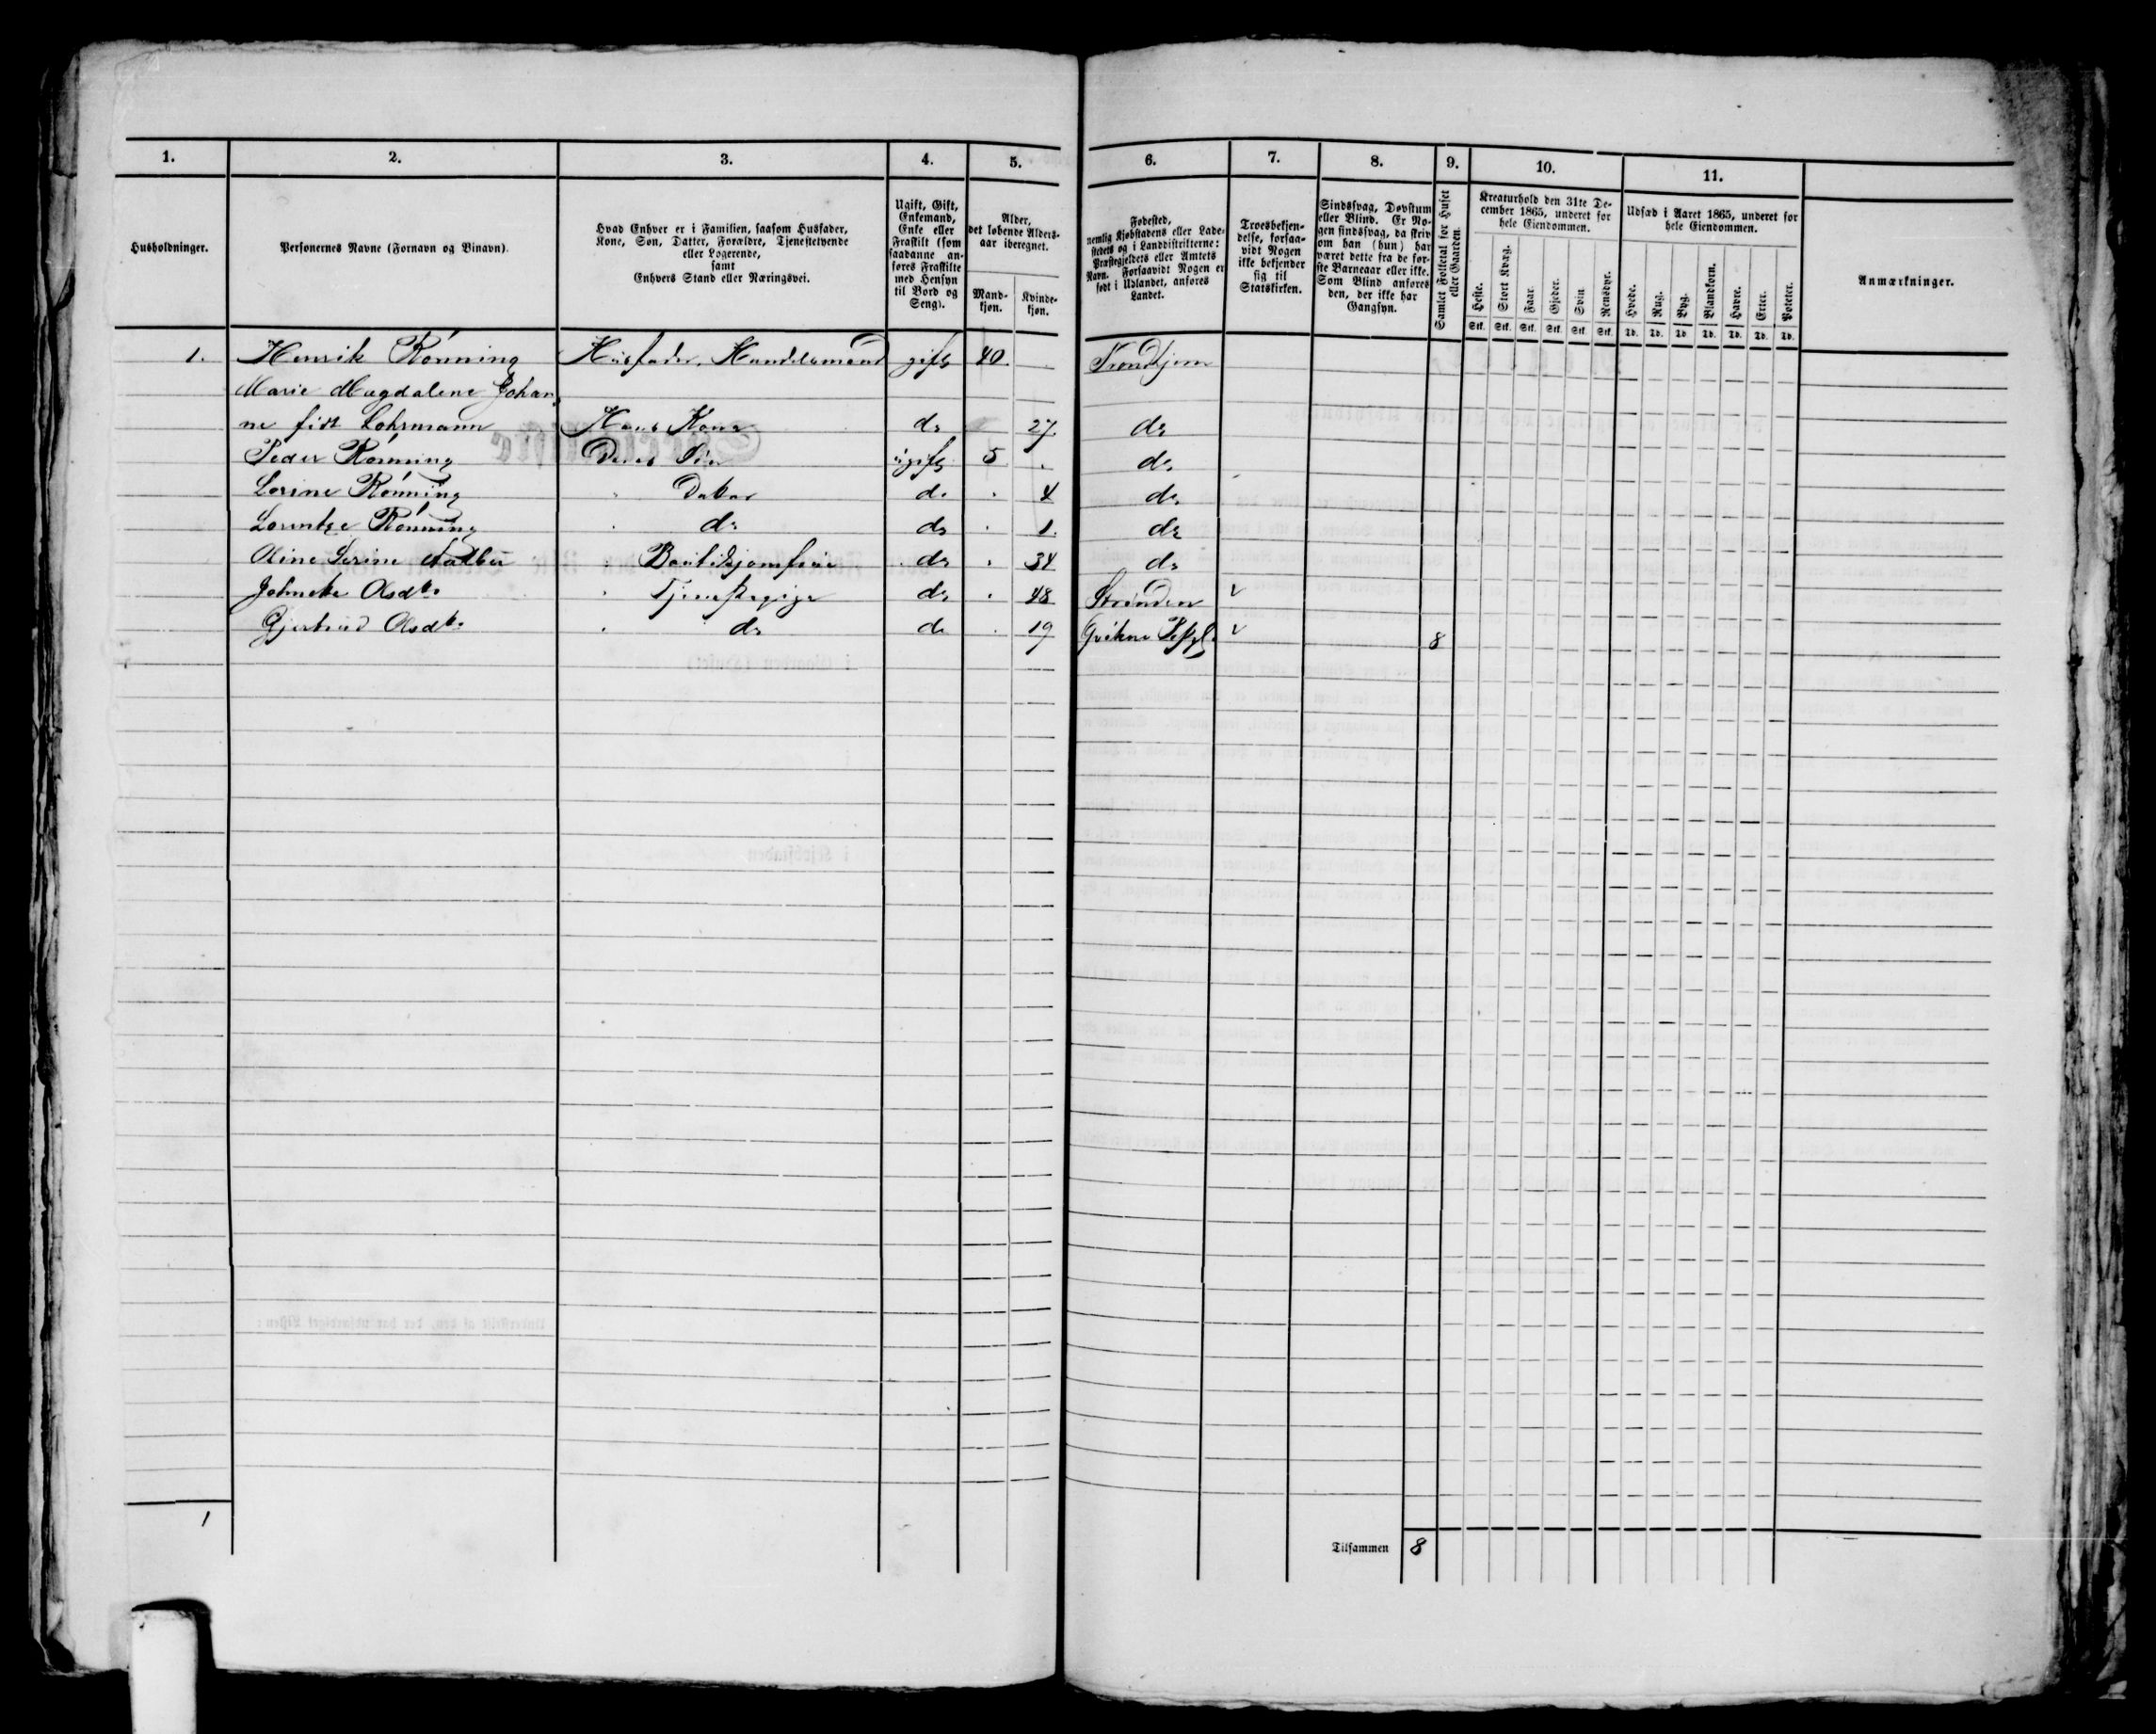 1. 2. 3. 4. 5. 6. 7. 8. 9. 10. 11.
Husholdninger.
Personernes Navne (Fornavn og Binavn).
Hvad Enhver er i Familien, saasom Husfader,
Kone, Søn, Datter, Forældre, Tjenestetyende
eller Logerende,
samt
Enhvers Stand eller Næringsvei.
Ugift, Gift,
Enkemand,
Enke eller
Fraskilt (som
saadanne an-
føres Fraskilte
med Hensyn
til Bord og
Seng).
Alder,
det løbende Alders-
aar iberegnet.
Mand-
kjøn.
Kvinde-
kjøn.
Fødested,
nemlig Kjøbstadens eller Lade-
stedets og i Landdistrikterne:
Præstegjeldets eller Amtets
Navn. Forsaavidt Nogen er
født i Udlandet, anføres
Landet.
Troesbekjen-
delse, forsaa-
vidt Nogen
ikke bekjender
sig til
Statskirken.
Sindssvag, Døvstum
eller Blind. Er No-
gen sindssvag, da skriv
om han (hun) har
været dette fra de før-
ste Barneaar eller ikke.
Som Blind anføres
den, der ikke har
Gangsyn.
Samlet Folketal for Huset
eller Gaarden.
Kreaturhold den 31te De-
cember 1865, underet for
hele Eiendommen.
Heste. Stort Kvæg. Faar. Gjeder. Svin. Rensdyr.
Stk. Stk. Stk. Stk. Stk. Stk.
Udsæd i Aaret 1865, underet for
hele Eiendommen.
Hvede. Rug. Byg. Blandkorn. Havre. Erter. Poteter.
Td. Td. Td. Td. Td. Td. Td.
Anmærkninger.
1. Henrik Rønning Husfader, Handelsmand gift 40 Trondhjem
Marie Magdalene Johan
ne født Lohrmann Hans Kone do 27 do
Peder Rønning Deres Søn ugift 5 do
Lorine Rønning " Datter do 4 do
Lorentze Rønning " do do 1 do
Oline Serine do 34 do
Olsdtr " Tjenestepige do 48 Strinden
Gjertrud Olsdtr " do do 19 8
1
Tilsammen 8